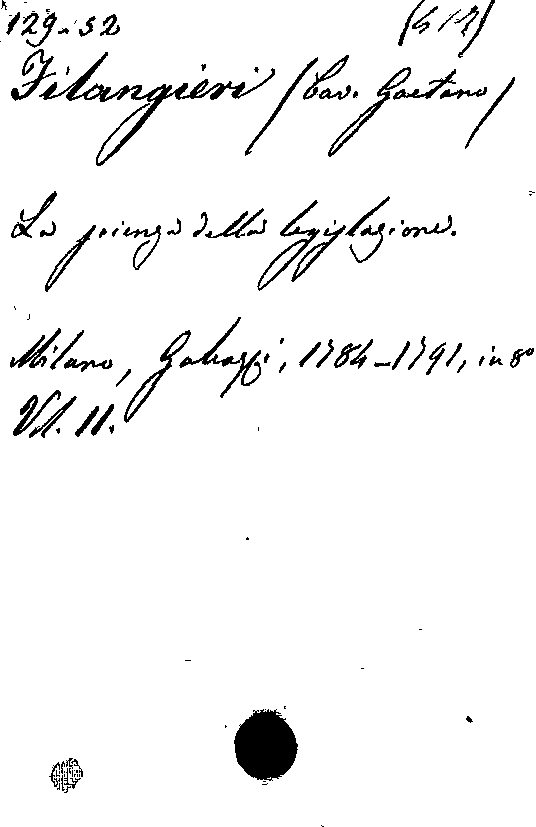 129. 52
Filangieri (Cav. Gaetano)
La scienza della legislazione.
Milano, Galeazzi, 1784-1791, in 8º
Vol. 11.